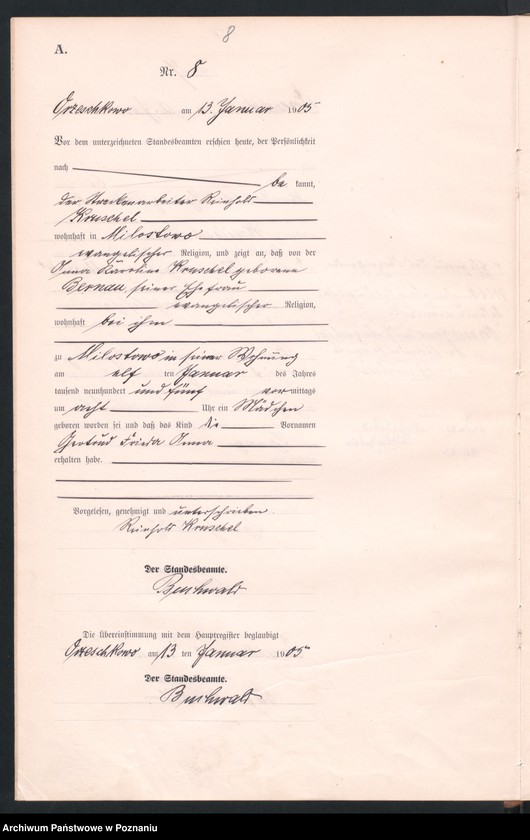 8
A.
Nr. 8
Orzeschkowo am 13. Januar 1905
Vor dem unterzeichneten Standesbeamten erschien heute, der Persönlichkeit
nach
be kannt,
der Streckenarbeiter Reinhold
Kruschel
wohnhaft in Milostowo
evangelischer Religion, und zeigt an, daß von der
Anna Karoline Kruschel geborene
Bernau, seiner Ehefrau
evangelischer Religion,
wohnhaft bei ihm
zu Milostowo in seiner Wohnung
am elf ten Januar des Jahres
tausend neunhundert und fünf vor mittags
um acht Uhr ein Mädchen
geboren worden sei und daß das Kind die Vornamen
Gertrud Frieda Anna
erhalten habe.
Vorgelesen, genehmigt und unterschrieben.
Reinhold Kruschel
Der Standesbeamte.
Buchwald
Die Übereinstimmung mit dem Hauptregister beglaubigt
Orzeschkowo am 13 ten Januar 1905
Der Standesbeamte.
Buchwald
Archiwum Państwowe w Poznaniu